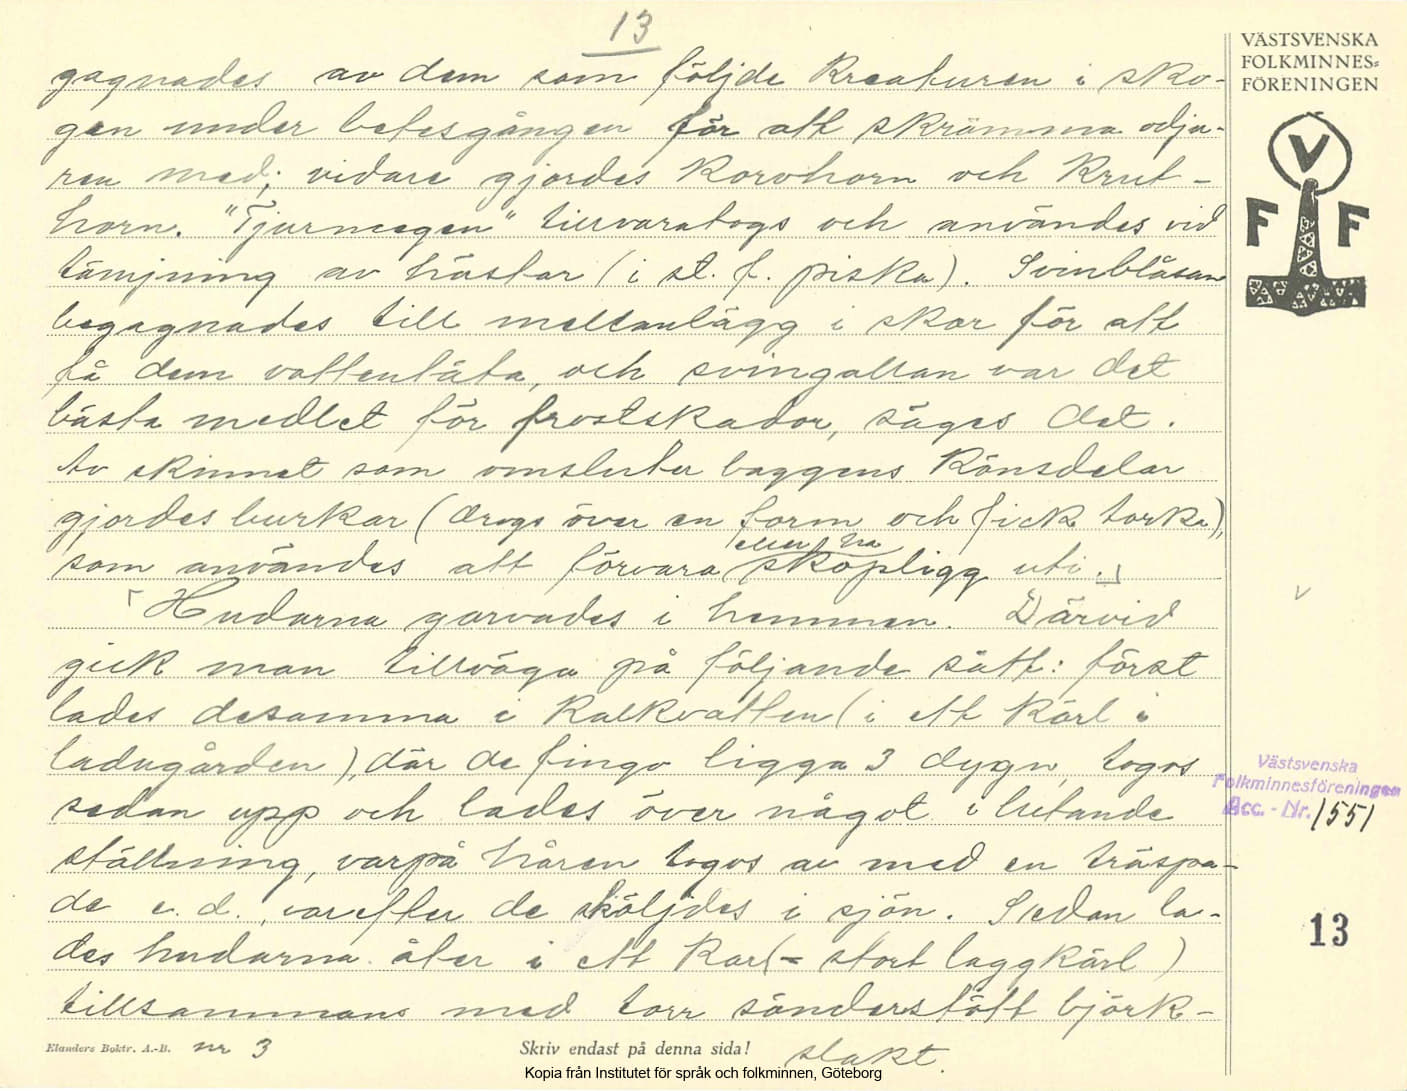 13
gagnades av dem som följde kreaturen i sko-
gen under betesgången för att skrämma odju-
ren med; vidare gjordes korvhorn och krut-
horn. "Tjurneegen" tillvaratogs och användes vid
tämjning av hästar (i st. f. piska). Svinblåsan
begagnades till mellanlägg i skor för att
få dem vattentäta, och svingallan var det
bästa medlet för frostskador, säges det.
Av skinnet som omsluter baggens könsdelar
gjordes burkar (drogs över en form och fick torka),
eller ha
som användes att förvara skopligg uti.
Hudarna garvades i hemmen. Därvid
gick man tillväga på följande sätt: först
lades desamma i kalkvatten (i ett kärl i
ladugården), där de fingo ligga 3 dygn, togos
sedan upp och lades över något i lutande
ställning, varpå håren togos av med en träspa-
de e. d., varefter de sköljdes i sjön. Sedan la-
des hudarna åter i ett kar (= stort laggkärl)
tillsammans med torr sönderstött björk-
Elanders Boktr. A.-B. nr 3
Skriv endast på denna sida!
slakt.
Kopia från Institutet för språk och folkminnen, Göteborg
VÄSTSVENSKA
FOLKMINNES-
FÖRENINGEN
V
F F
Västsvenska
Folkminnesföreningen
Acc. - Nr. 1551
13